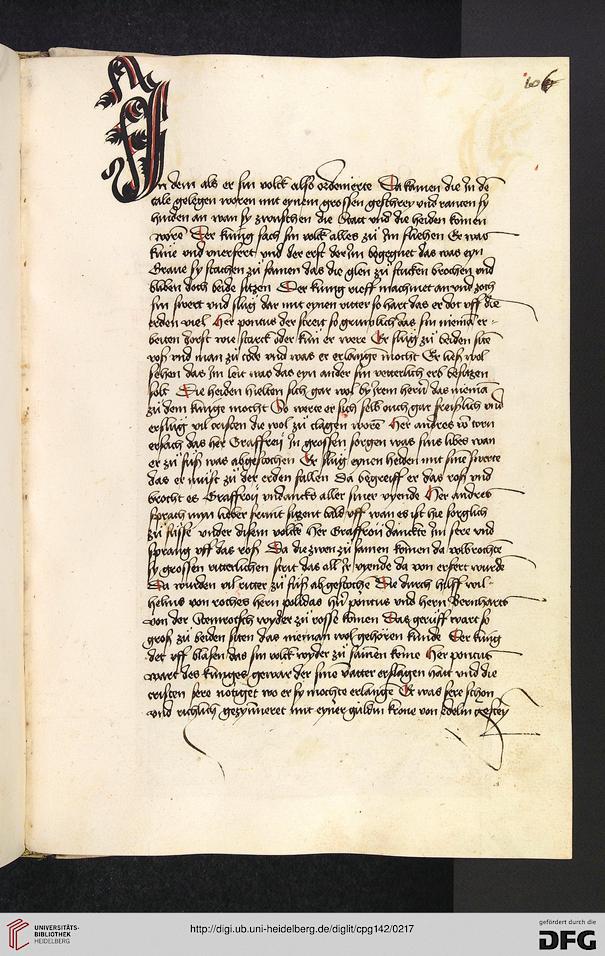 106
In dem als er sin volck also ordenierte Da kamen die in dē
tale gelegen woren mit eynem grossen geschrey vnd ranten sy
hinden an wan sy zwuschen die Statt vnd die heiden komen
worē Der kunig sach sin volck alles zu im fliehen Er was
kune vnd vnerfert vnd der erst der im begegnet das was eyn
Graue sy stachen zu samen das die glen zu stucken brochen vnd
bliben doch beide sitzen Der kung rieff machmet an vnd zoch
sin swert vnd slug dar mit eynen ritter so hart das er dot vff die
erden viel Her pontus der streit so grimlich das sin niemā er-
beiten dorst wie starck oder kun er were Er slug zu beiden sitē
roß vnd man zu tode vnd was er erlange mocht Er ließ wol
sehen das im leit was das eyn ander sin vetterlich erb besitzen
solt Die heiden hielten sich gar wol by irem herrn das niemā
zu dem kunge mocht So werte er sich selb ouch gar frouslich vnd
erslug vil cristen die wol zu clagen worē Her andres vō torn
ersach das her Graffrey in grossen sorgen was sins libes wan
er zu fuß was abgestochen Er slug eynen heiden mit sine swerte
das er must zu der erden fallen Da begreiff er das roß vnd
brocht es Graffroy vndancks aller siner vyende Her andres
sprach myn lieber frunt sitzent bald vff wan es ist hie sorglich
zu fusse vnder disem volcke Her Graffroy danckte im sere vnd
sprang vff das roß Da die zwen zu samen komen da volbrochte
sy grossen ritterlichen strit das all ir vyende da von erfert wurdē
Da wurden vil ritter zu fuß abgestochē Die durch hilff wil-
helms von roches hern polidas her pontus vnd hern Bernharts
von der Stenrotsch wyder zu rosse komen Das geruff wart so
groß zu beiden siten das nieman wol gehören kunde Der kung
det vff blasen das sin volck wyder zu samen keme Her pontus
wart des kunges gewar der sinē vatter erslagen hatt vnd die
cristen sere notiget wo er sy mochte erlange Er was sere schon
vnd richlich gezymieret mit eyner guldin krone von edelm gestey
UNIVERSITÄTS-
BIBLIOTHEK
HEIDELBERG
http://digi.ub.uni-heidelberg.de/diglit/cpg142/0217
gefördert durch die
DFG